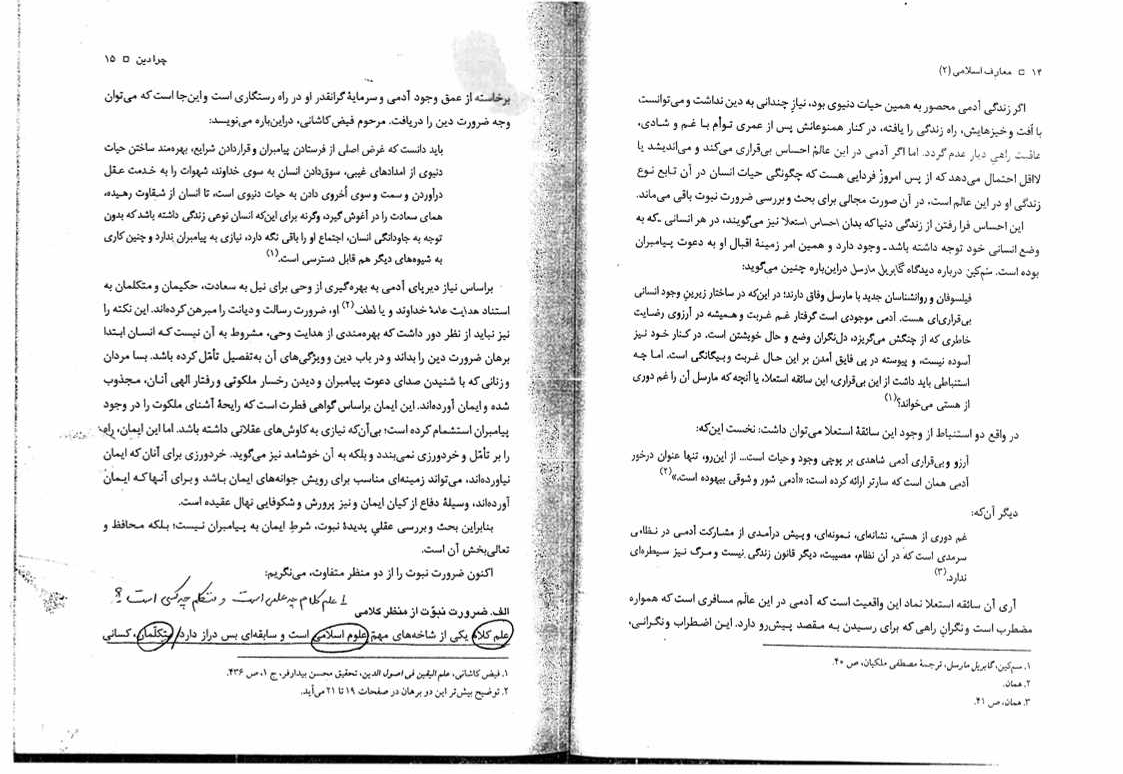 ۱۴ □ معارف اسلامی (۲)
اگر زندگی آدمی محصور به همین حیات دنیوی بود، نیازِ چندانی به دین نداشت و می‌توانست
با اُفت و خیزهایش، راه زندگی را یافته، در کنار همنوعانش پس از عمری توأم با غم و شادی،
عاقبت راهی دیار عدم گردد. اما اگر آدمی در این عالمْ احساس بی‌قراری می‌کند و می‌اندیشد یا
لااقل احتمال می‌دهد که از پس امروزْ فردایی هست که چگونگی حیات انسان در آن تابع نوع
زندگی او در این عالم است، در آن صورت مجالی برای بحث و بررسی ضرورت نبوت باقی می‌ماند.
این احساس فرا رفتن از زندگی دنیا که بدان احساس استعلا نیز می‌گویند، در هر انسانی ـ که به
وضع انسانی خود توجه داشته باشد ـ وجود دارد و همین امر زمینهٔ اقبال او به دعوت پیامبران
بوده است. سَم‌کین درباره دیدگاه گابریل مارسل دراین‌باره چنین می‌گوید:
فیلسوفان و روانشناسان جدید با مارسل وفاق دارند؛ در این‌که در ساختار زیرین وجود انسانی
بی‌قراری‌ای هست. آدمی موجودی است گرفتار غم غربت و همیشه در آرزوی رضایت
خاطری که از چنگش می‌گریزد، دل‌نگران وضع و حال خویشتن است. در کنار خود نیز
آسوده نیست، و پیوسته در پی فایق آمدن بر این حال غربت و بیگانگی است. اما چه
استنباطی باید داشت از این بی‌قراری، این سائقه استعلا، یا آنچه که مارسل آن را غم دوری
از هستی می‌خواند؟(۱)
در واقع دو استنباط از وجود این سائقهٔ استعلا می‌توان داشت: نخست این‌که:
آرزو و بی‌قراری آدمی شاهدی بر پوچی وجود و حیات است... از این‌رو، تنها عنوان درخور
آدمی همان است که سارتر ارائه کرده است: «آدمی شور و شوقی بیهوده است.»(۲)
دیگر آن‌که:
غم دوری از هستی، نشانه‌ای، نمونه‌ای، و پیش درآمدی از مشارکت آدمی در نظامی
سرمدی است که در آن نظام، مصیبت، دیگر قانون زندگی نیست و مرگ نیز سیطره‌ای
ندارد.(۳)
آری آن سائقه استعلا نماد این واقعیت است که آدمی در این عالَم مسافری است که همواره
مضطرب است و نگرانِ راهی که برای رسیدن به مقصد پیش‌رو دارد. این اضطراب و نگرانی،
۱. سم‌کین، گابریل مارسل، ترجمهٔ مصطفی ملکیان، ص ۴۰.
۲. همان.
۳. همان، ص ۴۱.
چرا دین □ ۱۵
برخاسته از عمق وجود آدمی و سرمایهٔ گرانقدر او در راه رستگاری است و این‌جا است که می‌توان
وجه ضرورت دین را دریافت. مرحوم فیض کاشانی، دراین‌باره می‌نویسد:
باید دانست که غرض اصلی از فرستادن پیامبران و قراردادن شرایع، بهره‌مند ساختن حیات
دنیوی از امدادهای غیبی، سوق‌دادن انسان به سوی خداوند، شهوات را به خدمت عقل
درآوردن و سمت و سوی اُخروی دادن به حیات دنیوی است، تا انسان از شقاوت رهیده،
همای سعادت را در آغوش گیرد، وگرنه برای این‌که انسان نوعی زندگی داشته باشد که بدون
توجه به جاودانگی انسان، اجتماع او را باقی نگه دارد، نیازی به پیامبران ندارد و چنین کاری
به شیوه‌های دیگر هم قابل دسترسی است.(۱)
براساس نیاز دیرپای آدمی به بهره‌گیری از وحی برای نیل به سعادت، حکیمان و متکلمان به
استناد هدایت عامهٔ خداوند و یا لطف(۲) او، ضرورت رسالت و دیانت را مبرهن کرده‌اند. این نکته را
نیز نباید از نظر دور داشت که بهره‌مندی از هدایت وحی، مشروط به آن نیست که انسان ابتدا
برهان ضرورت دین را بداند و در باب دین و ویژگی‌های آن به‌تفصیل تأمّل کرده باشد. بسا مردان
و زنانی که با شنیدن صدای دعوت پیامبران و دیدن رخسار ملکوتی و رفتار الهی آنان، مجذوب
شده و ایمان آورده‌اند. این ایمان براساس گواهی فطرت است که رایحهٔ آشنای ملکوت را در وجود
پیامبران استشمام کرده است؛ بی‌آن‌که نیازی به کاوش‌های عقلانی داشته باشد. اما این ایمان، راه
را بر تأمّل و خردورزی نمی‌بندد و بلکه به آن خوشامد نیز می‌گوید. خردورزی برای آنان که ایمان
نیاورده‌اند، می‌تواند زمینه‌ای مناسب برای رویش جوانه‌های ایمان باشد و برای آنها که ایمان
آورده‌اند، وسیلهٔ دفاع از کیان ایمان و نیز پرورش و شکوفایی نهال عقیده است.
بنابراین بحث و بررسی عقلیِ پدیدهٔ نبوت، شرطِ ایمان به پیامبران نیست؛ بلکه محافظ و
تعالی‌بخش آن است.
اکنون ضرورت نبوت را از دو منظر متفاوت، می‌نگریم:
۱ علم کلام چه علمی است و متکلم چه کسی است ؟
الف. ضرورت نبوّت از منظر کلامی
علم کلام یکی از شاخه‌های مهمّ علوم اسلامی است و سابقه‌ای بس دراز دارد. متکلّمان، کسانی
۱. فیض کاشانی، علم الیقین فی اصول الدین، تحقیق محسن بیدارفر، ج ۱، ص ۴۳۶.
۲. توضیح بیش‌تر این دو برهان در صفحات ۱۹ تا ۲۱ می‌آید.